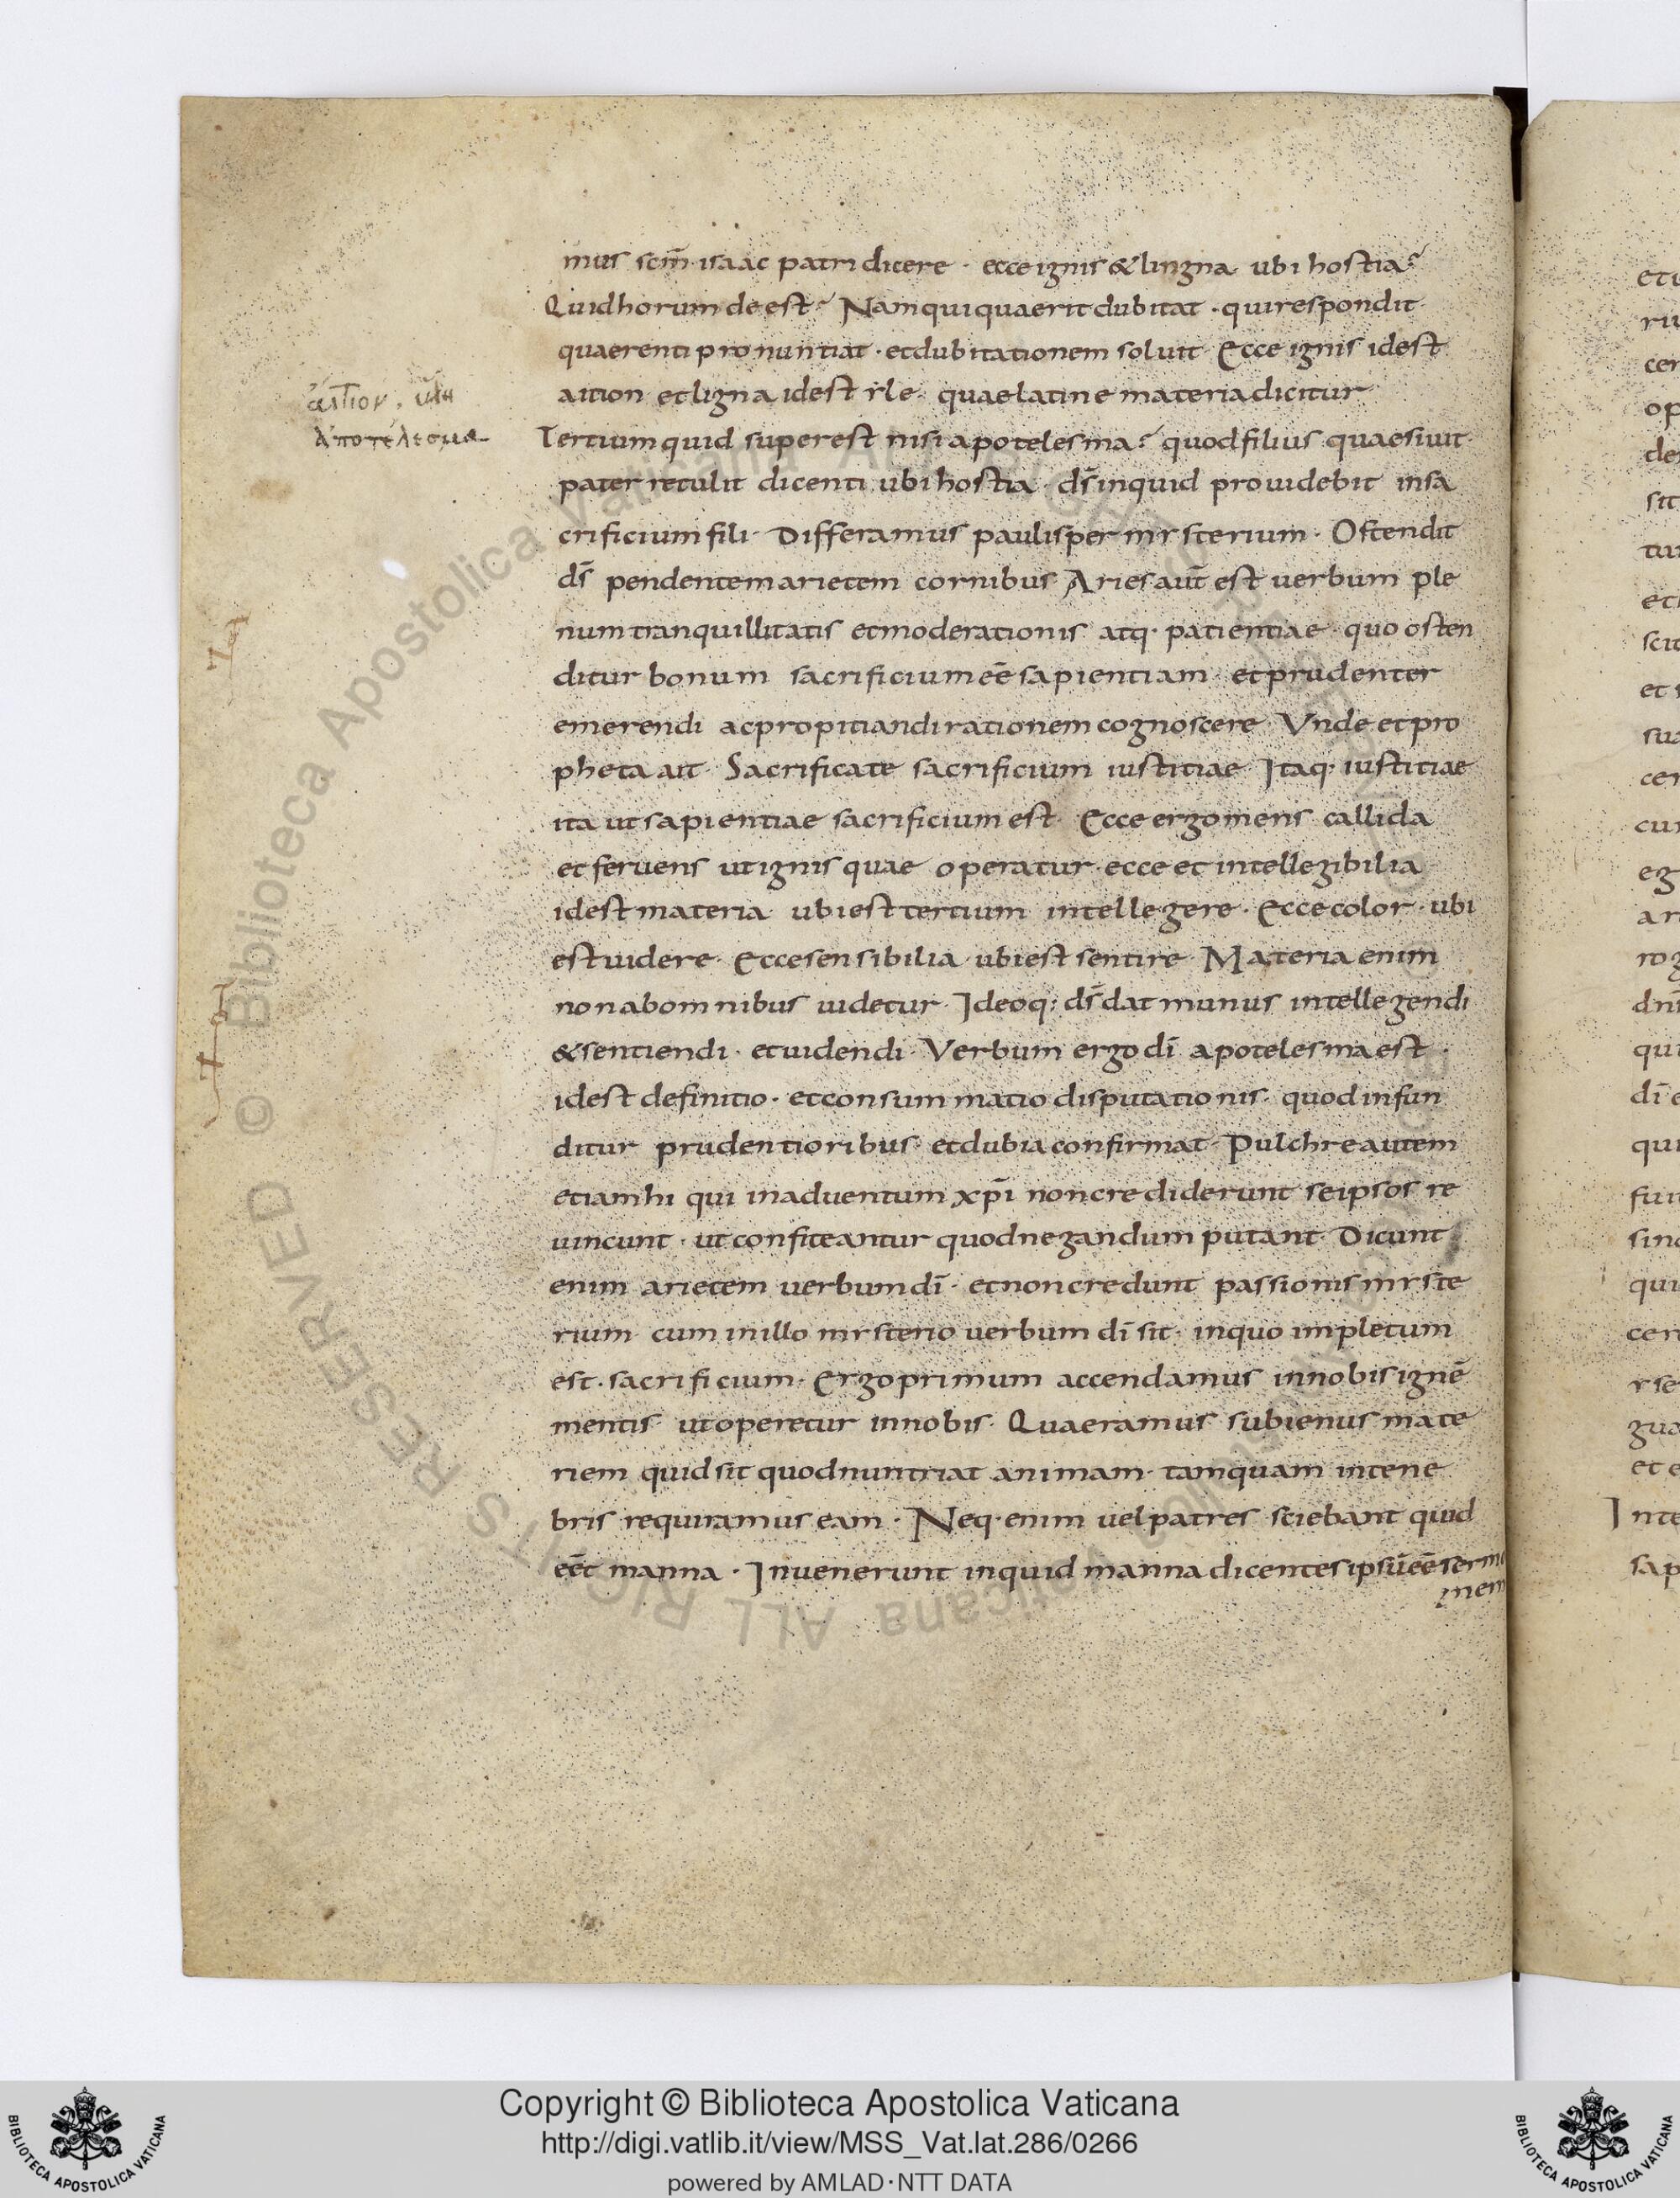 mus scm̄ isaac patri dicere · ecce ignis & lingna ubi hostia?
Quid horum deest? Nam qui quaerit dubitat · qui respondit
quaerenti pronuntiat · et dubitationem soluit · Ecce ignis id est
αἴτιον, ὕλη
aition et ligna id est yle · quae latine materia dicitur
ἀποτέλεσμα
Tertium quid superest nisi apotelesma? quod filius quaesiuit
pater retulit dicenti ubi hostia · ds̄ inquid prouidebit in sa
crificium fili · Differamus paulisper mysterium · Ostendit
ds̄ pendentem arietem cornibus Aries aut̄ est uerbum ple
num tranquillitatis et moderationis atq· patientiae · quo osten
ditur bonum sacrificium eē sapientiam · et prudenter
emerendi ac propitiandi rationem cognoscere · Vnde et pro
pheta ait · Sacrificate sacrificium iustitiae · Itaq· iustitiae
ita ut sapientiae sacrificium est · Ecce ergo mens callida
et feruens ut ignis quae operatur · ecce et intellegibilia
id est materia · ubi est tertium intellegere · Ecce color · ubi
est uidere · Ecce sensibilia · ubi est sentire · Materia enim
non ab omnibus uidetur · Ideoq; ds̄ dat munus intellegendi
& sentiendi · et uidendi · Verbum ergo dī apotelesma est ·
id est definitio · et consummatio disputationis · quod infun
ditur prudentioribus · et dubia confirmat · Pulchre autem
etiam hi qui in aduentum xp̄i non crediderunt se ipsos re
uincunt · ut confiteantur quod negandum putant · Dicunt
enim arietem uerbum dī · et non credunt passionis myste
rium · cum in illo mysterio uerbum dī sit · in quo impletum
est · sacrificium · Ergo primum accendamus in nobis ignē
mentis · ut operetur in nobis · Quaeramus subienus mate
riem quid sit quod nuntriat animam · tamquam in tene
bris requiramus eam · Neq· enim uel patres sciebant quid
eēt manna · Inuenerunt inquid manna dicentes ipsū eē sermo
nem
Copyright © Biblioteca Apostolica Vaticana
http://digi.vatlib.it/view/MSS_Vat.lat.286/0266
powered by AMLAD·NTT DATA
BIBLIOTECA APOSTOLICA VATICANA
BIBLIOTECA APOSTOLICA VATICANA